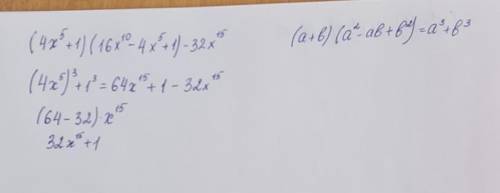 (4x⁵+1)(16x¹⁰-4x⁵+1)-32x¹⁵
(a+b)(a²-ab+b²)=a³+b³
(4x⁵)³+1³=64x¹⁵+1-32x¹⁵
(64-32)·x¹⁵
32x¹⁵+1